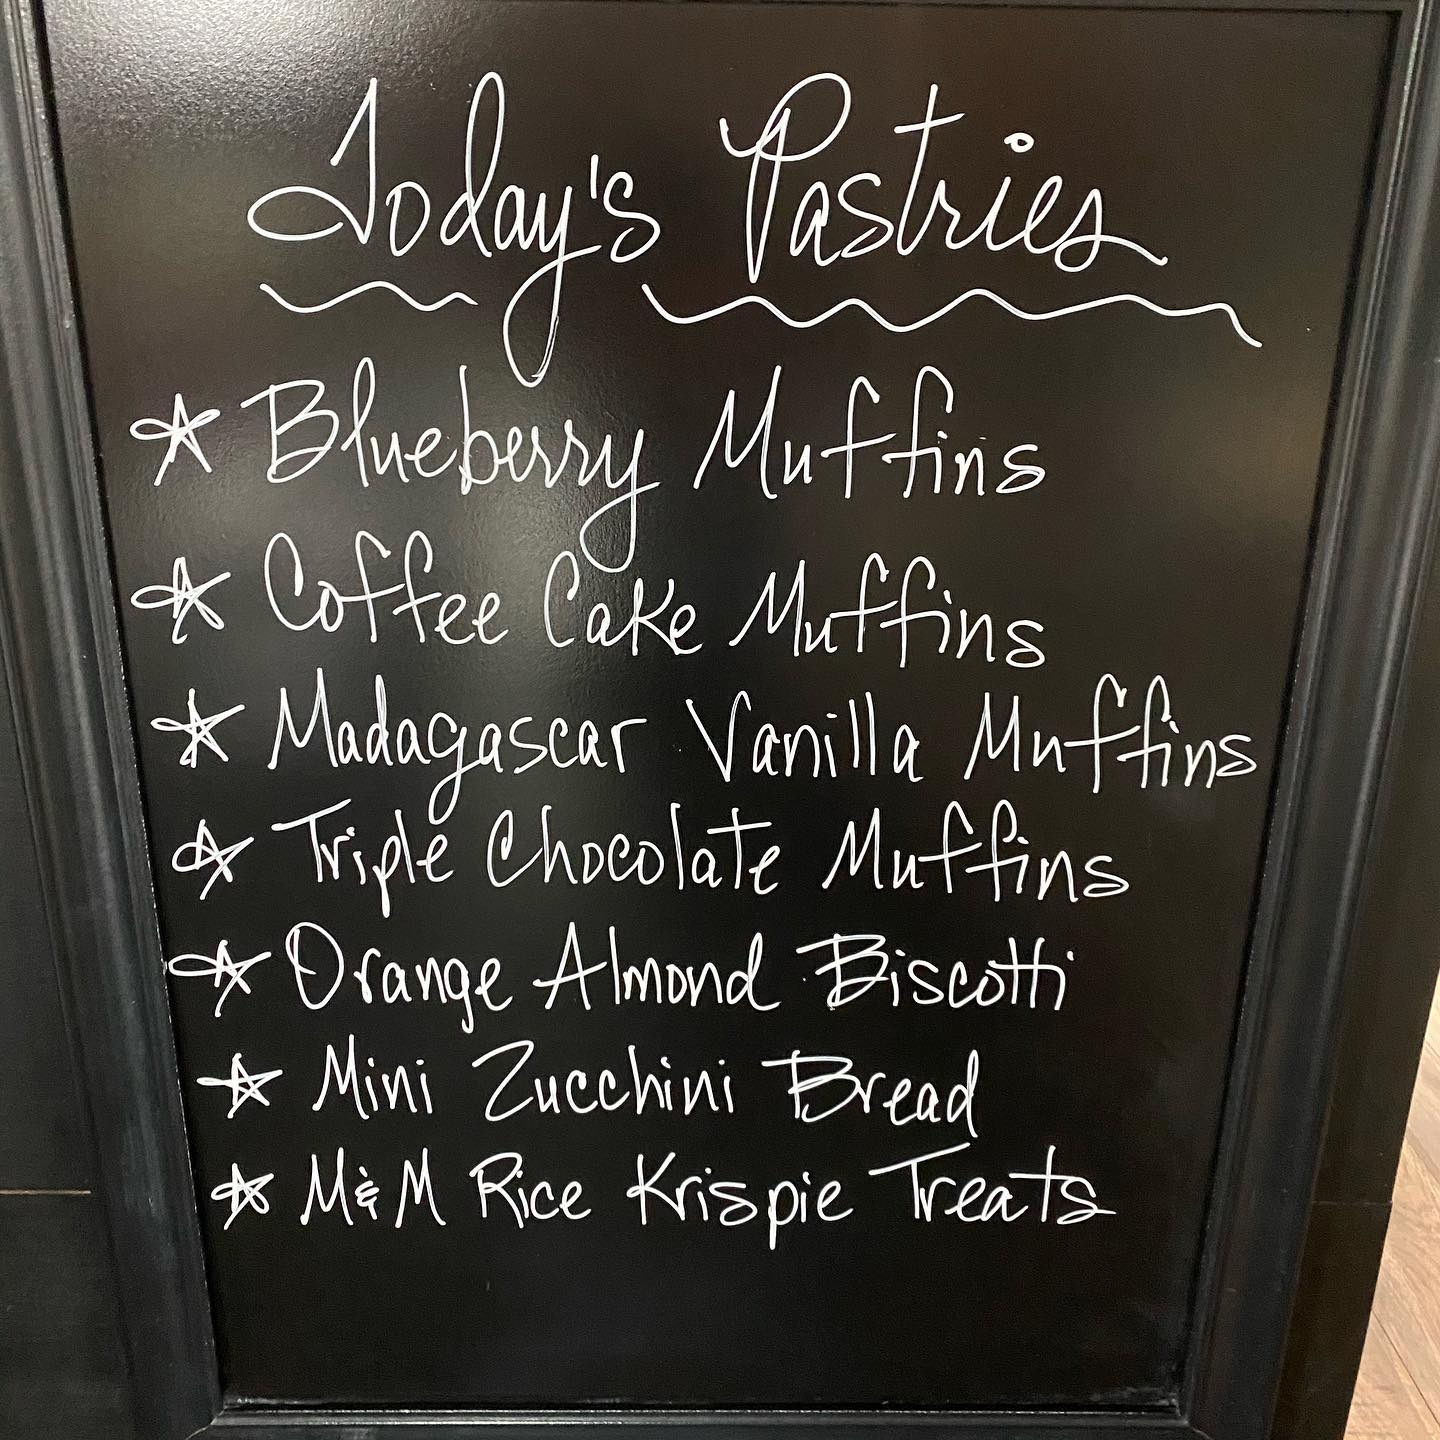 Today's Pastries
☆ Blueberry Muffins
☆ Coffee Cake Muffins
☆ Madagascar Vanilla Muffins
☆ Triple Chocolate Muffins
☆ Orange Almond Biscotti
☆ Mini Zucchini Bread
☆ M&M Rice Krispie Treats